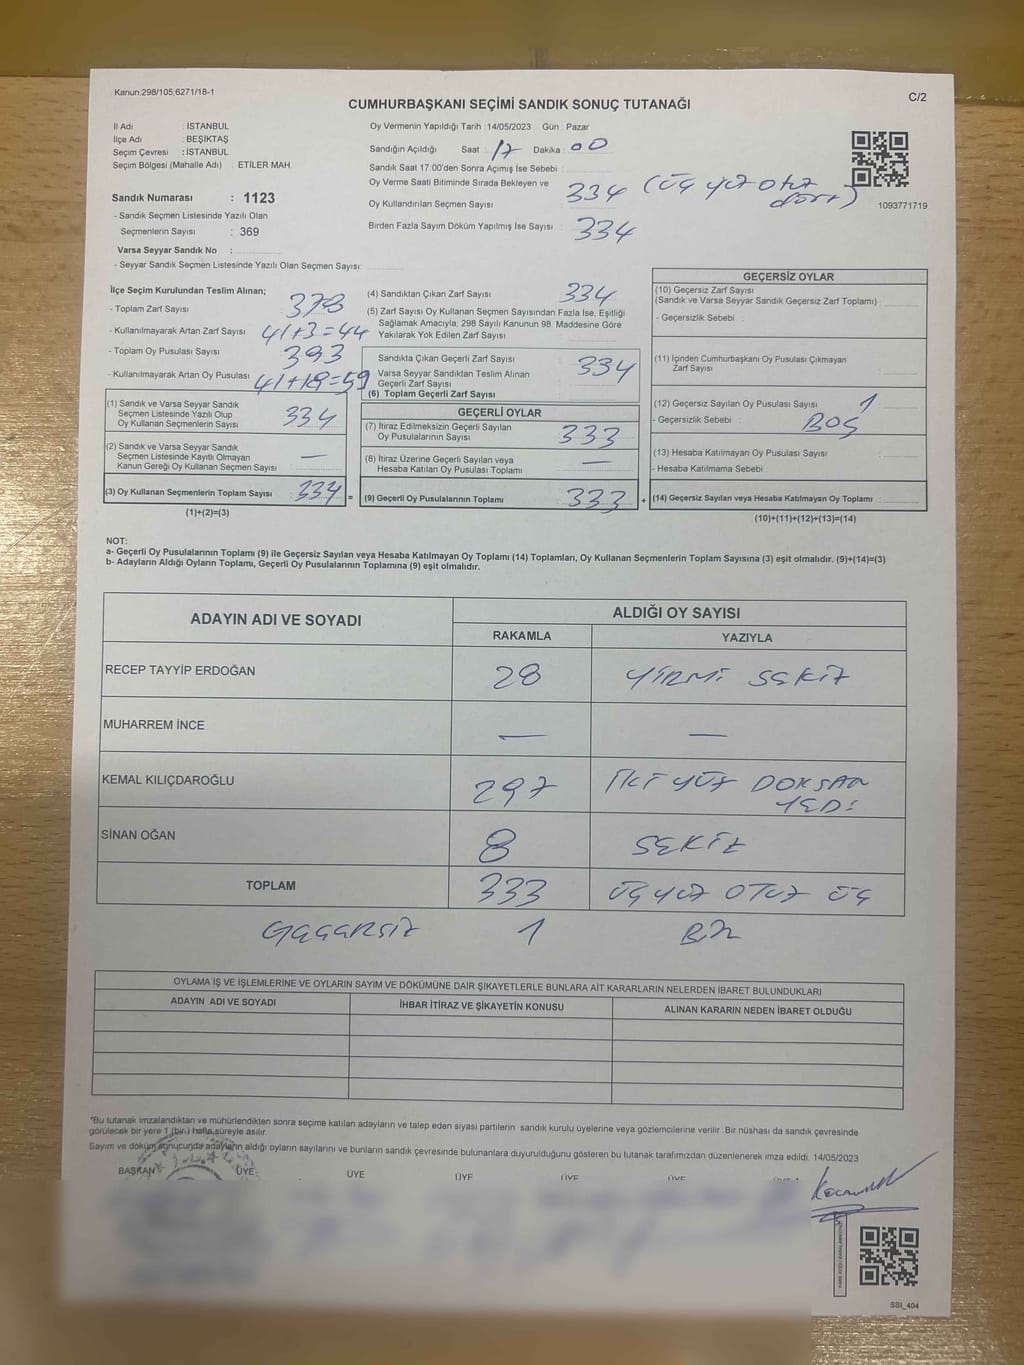 Kanun:298/105;6271/18-1
C/2
CUMHURBAŞKANI SEÇİMİ SANDIK SONUÇ TUTANAĞI
İl Adı : İSTANBUL
İlçe Adı : BEŞİKTAŞ
Seçim Çevresi : İSTANBUL
Seçim Bölgesi (Mahalle Adı) : ETİLER MAH.
Sandık Numarası : 1123
- Sandık Seçmen Listesinde Yazılı Olan
Seçmenlerin Sayısı : 369
Varsa Seyyar Sandık No :
- Seyyar Sandık Seçmen Listesinde Yazılı Olan Seçmen Sayısı:
Oy Vermenin Yapıldığı Tarih :14/05/2023 Gün : Pazar
Sandığın Açıldığı Saat : 17 Dakika : 00
Sandık Saat 17:00'den Sonra Açımış İse Sebebi :
Oy Verme Saati Bitiminde Sırada Bekleyen ve
Oy Kullandırılan Seçmen Sayısı : 334 (üç yüz otuz dört)
Birden Fazla Sayım Döküm Yapılmış İse Sayısı : 334
1093771719
İlçe Seçim Kurulundan Teslim Alınan;
- Toplam Zarf Sayısı : 378
- Kullanılmayarak Artan Zarf Sayısı : 41+3=44
- Toplam Oy Pusulası Sayısı : 393
- Kullanılmayarak Artan Oy Pusulası : 41+18=59
(1) Sandık ve Varsa Seyyar Sandık
Seçmen Listesinde Yazılı Olup
Oy Kullanan Seçmenlerin Sayısı : 334
(2) Sandık ve Varsa Seyyar Sandık
Seçmen Listesinde Kayıtlı Olmayan
Kanun Gereği Oy Kullanan Seçmen Sayısı : —
(3) Oy Kullanan Seçmenlerin Toplam Sayısı : 334 =
(1)+(2)=(3)
(4) Sandıktan Çıkan Zarf Sayısı : 334
(5) Zarf Sayısı Oy Kullanan Seçmen Sayısından Fazla İse, Eşitliği
Sağlamak Amacıyla; 298 Sayılı Kanunun 98. Maddesine Göre
Yakılarak Yok Edilen Zarf Sayısı :
Sandıkta Çıkan Geçerli Zarf Sayısı : 334
Varsa Seyyar Sandıktan Teslim Alınan
Geçerli Zarf Sayısı :
(6) Toplam Geçerli Zarf Sayısı :
GEÇERLİ OYLAR
(7) İtiraz Edilmeksizin Geçerli Sayılan
Oy Pusulalarının Sayısı : 333
(8) İtiraz Üzerine Geçerli Sayılan veya
Hesaba Katılan Oy Pusulası Toplamı : —
(9) Geçerli Oy Pusulalarının Toplamı : 333 +
GEÇERSİZ OYLAR
(10) Geçersiz Zarf Sayısı
(Sandık ve Varsa Seyyar Sandık Geçersiz Zarf Toplamı) :
- Geçersizlik Sebebi :
(11) İçinden Cumhurbaşkanı Oy Pusulası Çıkmayan
Zarf Sayısı :
(12) Geçersiz Sayılan Oy Pusulası Sayısı : 1
- Geçersizlik Sebebi : BOŞ
(13) Hesaba Katılmayan Oy Pusulası Sayısı :
- Hesaba Katılmama Sebebi :
(14) Geçersiz Sayılan veya Hesaba Katılmayan Oy Toplamı :
(10)+(11)+(12)+(13)=(14)
NOT:
a- Geçerli Oy Pusulalarının Toplamı (9) ile Geçersiz Sayılan veya Hesaba Katılmayan Oy Toplamı (14) Toplamları, Oy Kullanan Seçmenlerin Toplam Sayısına (3) eşit olmalıdır. (9)+(14)=(3)
b- Adayların Aldığı Oyların Toplamı, Geçerli Oy Pusulalarının Toplamına (9) eşit olmalıdır.
ADAYIN ADI VE SOYADI
ALDIĞI OY SAYISI
RAKAMLA YAZIYLA
RECEP TAYYİP ERDOĞAN 28 YİRMİ SEKİZ
MUHARREM İNCE — —
KEMAL KILIÇDAROĞLU 297 İKİ YÜZ DOKSAN YEDİ
SİNAN OĞAN 8 SEKİZ
TOPLAM 333 ÜÇ YÜZ OTUZ ÜÇ
GEÇERSİZ 1 BİR
OYLAMA İŞ VE İŞLEMLERİNE VE OYLARIN SAYIM VE DÖKÜMÜNE DAİR ŞİKAYETLERLE BUNLARA AİT KARARLARIN NELERDEN İBARET BULUNDUKLARI
ADAYIN ADI VE SOYADI İHBAR İTİRAZ VE ŞİKAYETİN KONUSU ALINAN KARARIN NEDEN İBARET OLDUĞU
*Bu tutanak imzalandıktan ve mühürlendikten sonra seçime katılan adayların ve talep eden siyasi partilerin sandık kurulu üyelerine veya gözlemcilerine verilir. Bir nüshası da sandık çevresinde
görülecek bir yere 1 (bir) hafta süreyle asılır.
Sayım ve döküm sonucunda adayların aldığı oyların sayılarını ve bunların sandık çevresinde bulunanlara duyurulduğunu gösteren bu tutanak tarafımızdan düzenlenerek imza edildi. 14/05/2023
BAŞKAN ÜYE ÜYE ÜYE ÜYE ÜYE
SSI_404